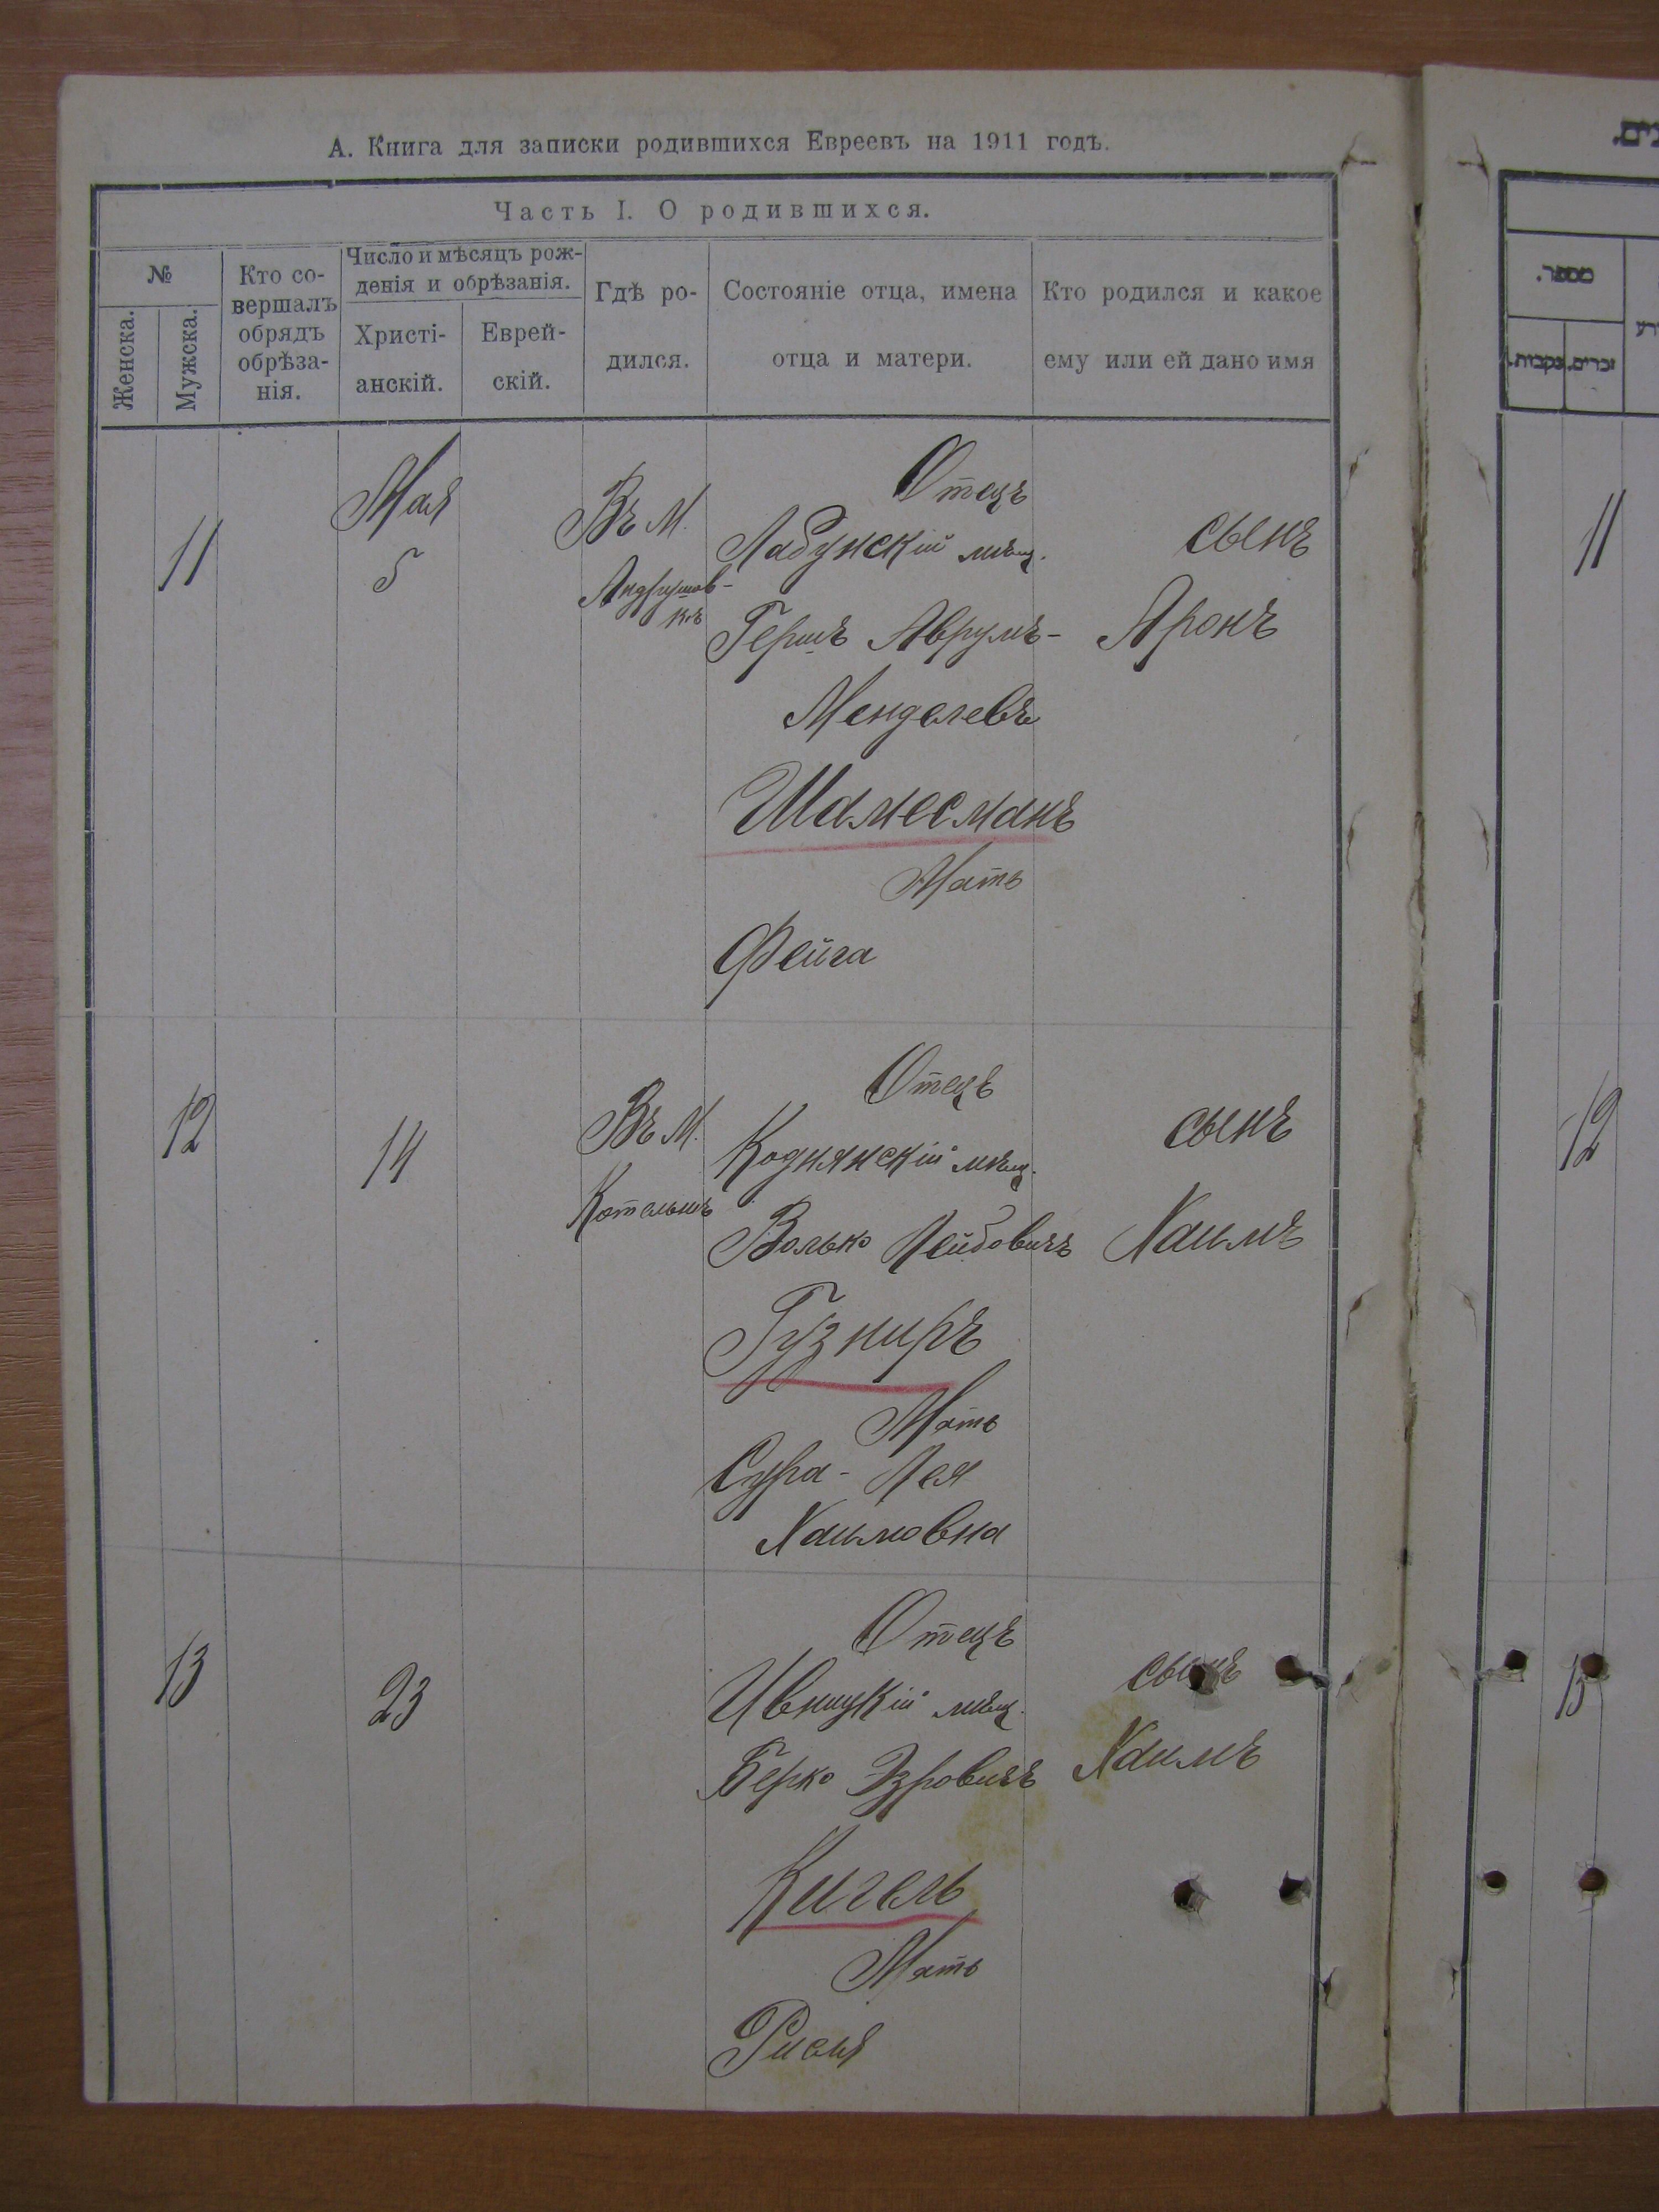 А. Книга для записки родившихся Евреевъ на 1911 годъ.
Часть I. О родившихся.
№
Женска.
Мужска.
Кто со-
вершалъ
обрядъ
обрѣза-
нія.
Число и мѣсяцъ рож-
денія и обрѣзанія.
Христі-
анскій.
Еврей-
скій.
Гдѣ ро-
дился.
Состояніе отца, имена
отца и матери.
Кто родился и какое
ему или ей дано имя
11
Мая
5
Въ М.
Андрушов-
кѣ
Отецъ
Лабунскій мѣщ.
Гершъ Аврумъ-
Менделевъ
Шамесманъ
Мать
Фейга
сынъ
Аронъ
12
14
Въ М.
Котельнѣ
Отецъ
Коднянскій мѣщ.
Волько Лейбовичъ
Гузниръ
Мать
Сура-Лея
Хаимовна
сынъ
Хаимъ
13
23
Отецъ
Ивницкій мѣщ.
Берко Эзровичъ
Кигель
Мать
сынъ
Хаимъ
נים.
מספר.
נקבות.
זכרים.
11
12
13